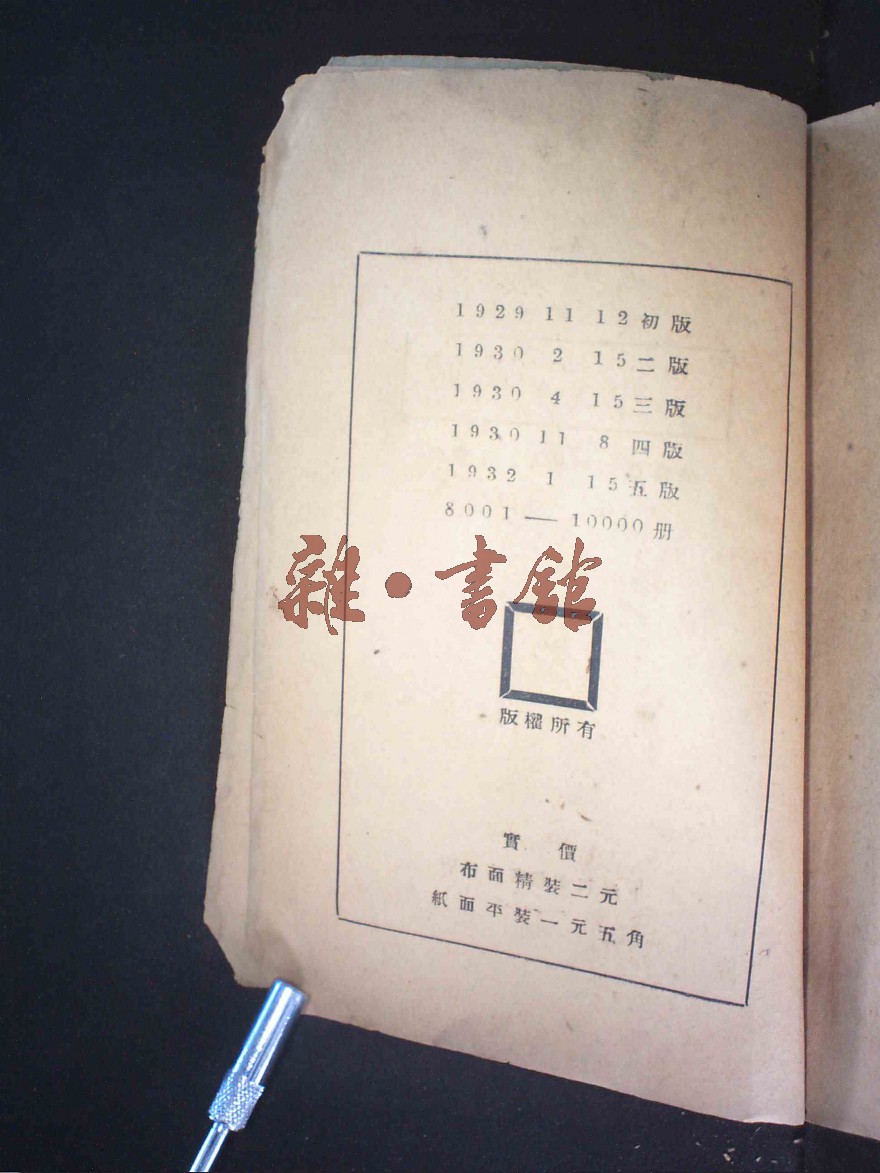 1929 11 12 初版
1930 2 15 二版
1930 4 15 三版
1930 11 8 四版
1932 1 15 五版
8001 — 10000 册
雜·書館
版權所有
實 價
布面精裝二元
紙面平裝一元五角